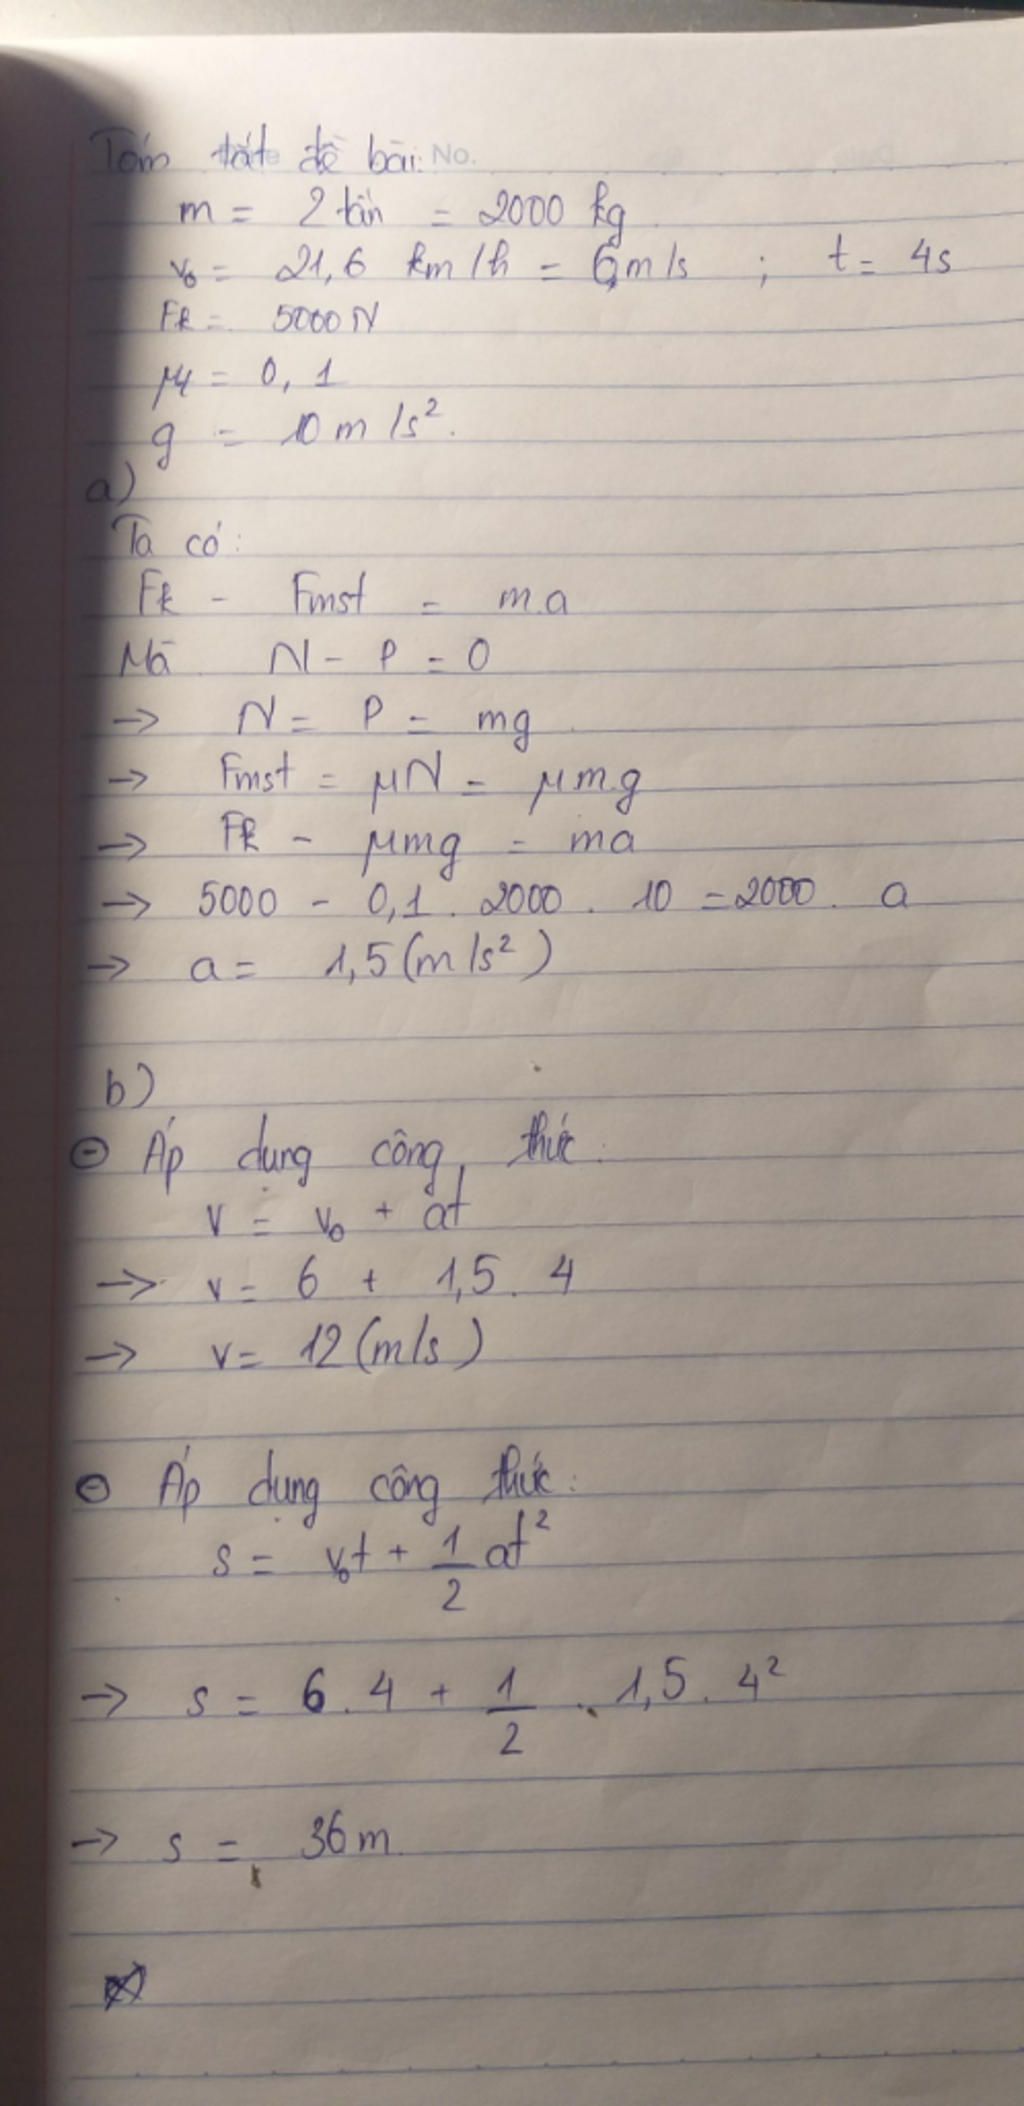 Tóm tắt đề bài: No.
m = 2 tấn = 2000 kg
v₀ = 21,6 km/h = 6m/s ; t = 4s
Fk = 5000N
μt = 0,1
g = 10 m/s².
a)
Ta có:
Fk - Fmst = m.a
Mà N - P = 0
→ N = P = mg
→ Fmst = μN = μm.g
→ Fk - μmg = ma
→ 5000 - 0,1 . 2000 . 10 = 2000 . a
→ a = 1,5 (m/s²)
b)
⊖ Áp dụng công thức:
v = v₀ + at
→ v = 6 + 1,5 . 4
→ v = 12 (m/s)
⊖ Áp dụng công thức:
s = v₀t + 1/2 at²
→ s = 6.4 + 1/2 . 1,5 . 4²
→ s = 36m